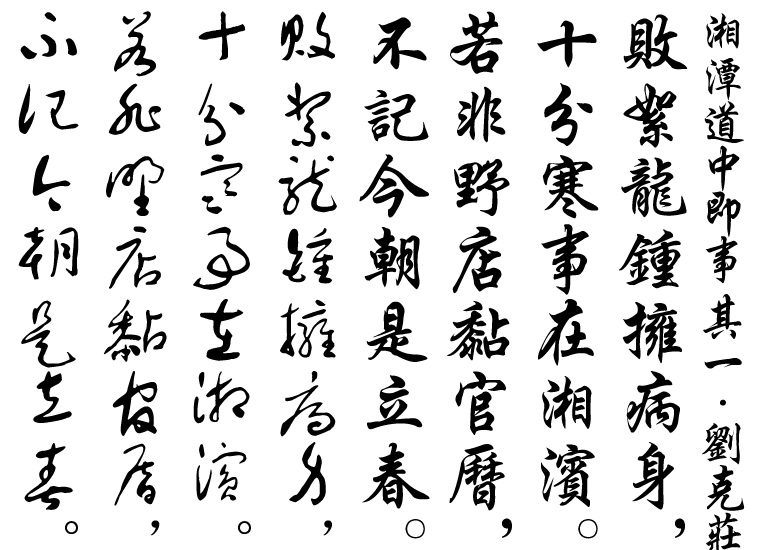 湘潭道中即事 其一·劉克莊
敗絮龍鍾擁病身，
十分寒事在湘濱。
若非野店黏官曆，
不記今朝是立春。
敗絮龍鍾擁病身，
十分寒事在湘濱。
若非野店黏官曆，
不記今朝是立春。